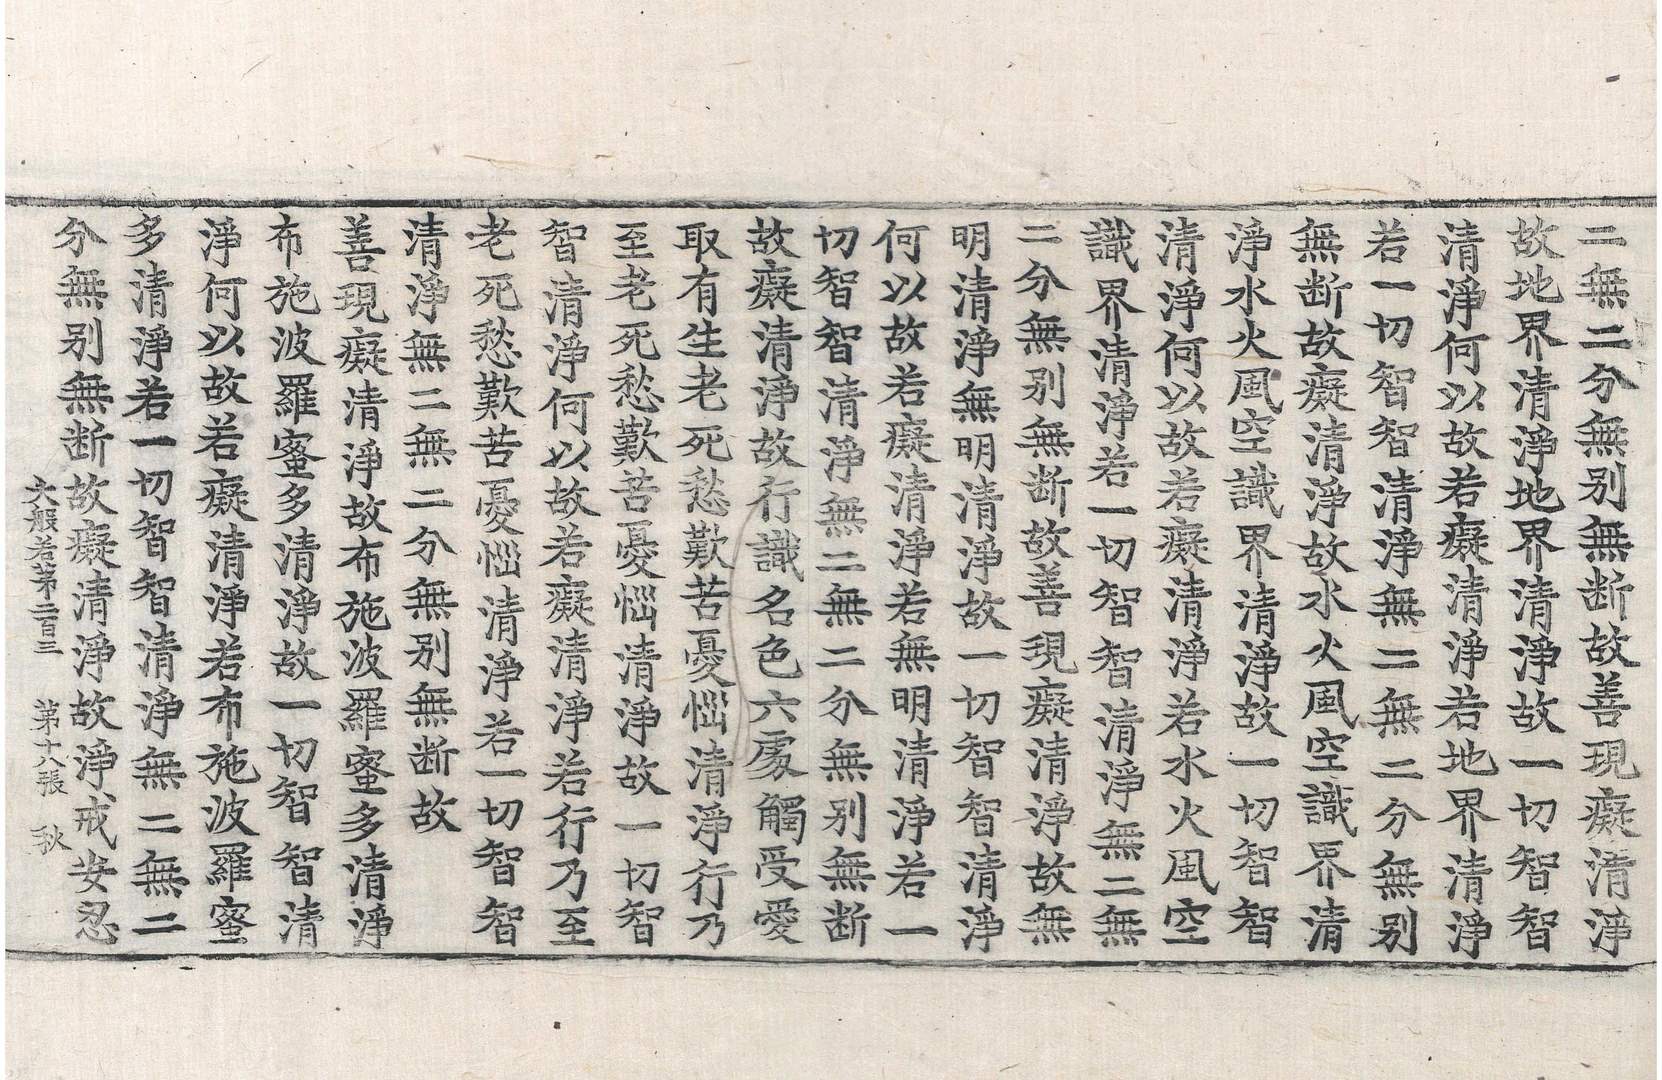 二無二分無别無斷故善現癡清淨
故地界清淨地界清淨故一切智智
清淨何以故若癡清淨若地界清淨
若一切智智清淨無二無二分無别
無断故癡清淨故水火風空識界清
淨水火風空識界清淨故一切智智
清淨何以故若癡清淨若水火風空
識界清淨若一切智智清淨無二無
二分無别無断故善現癡清淨故無
明清淨無明清淨故一切智智清淨
何以故若癡清淨若無明清淨若一
切智智清淨無二無二分無别無断
故癡清淨故行識名色六處觸受愛
取有生老死愁歎苦憂惱清淨行乃
至老死愁歎苦憂惱清淨故一切智
智清淨何以故若癡清淨若行乃至
老死愁歎苦憂惱清淨若一切智智
清淨無二無二分無别無断故
善現癡清淨故布施波羅蜜多清淨
布施波羅蜜多清淨故一切智智清
淨何以故若癡清淨若布施波羅蜜
多清淨若一切智智清淨無二無二
分無别無断故癡清淨故淨戒安忍
大般若第二百三 第十八張 秋